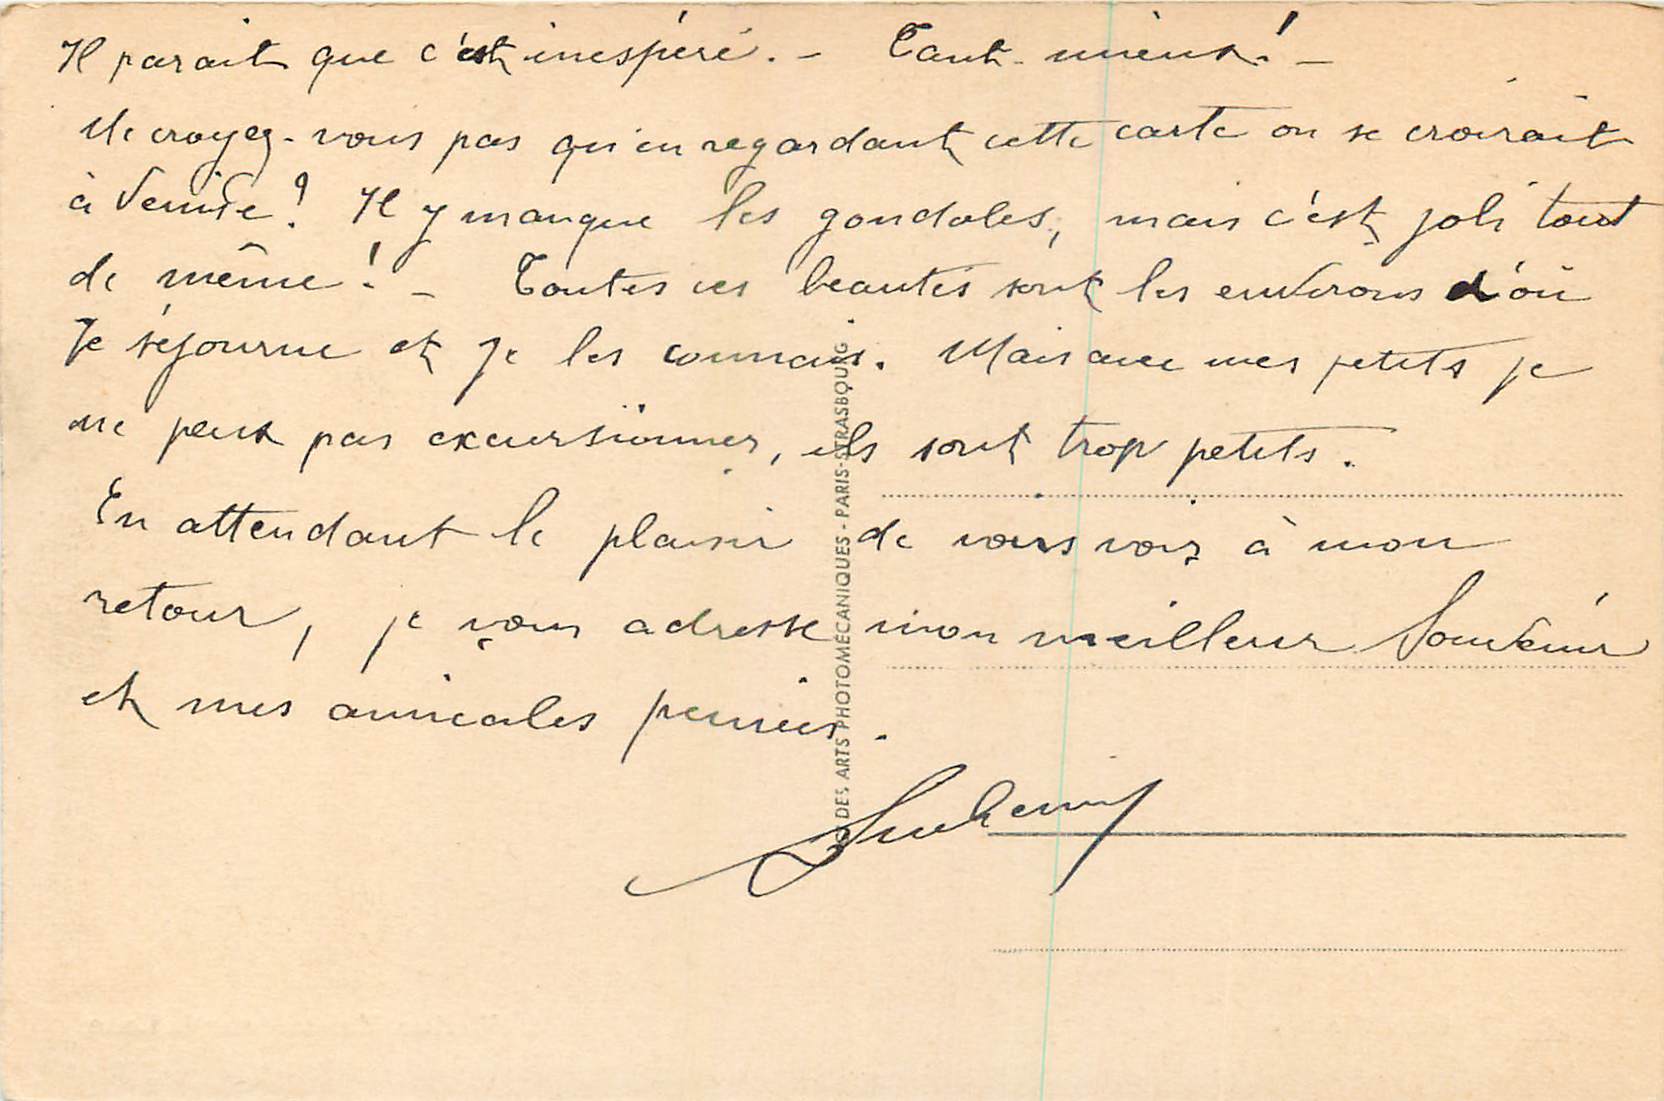 Il parait que c'est inespéré. - Tant mieux! -
Ne croyez-vous pas qu'en regardant cette carte on se croirait
à Venise? Il y manque les gondoles, mais c'est joli tout
de même! - Toutes ces beautés sont les environs d'où
je séjourne et je les connais. Mais avec mes petits je
ne peux pas excursionner, ils sont trop petits.
En attendant le plaisir de vous voir à mon
retour, je vous adresse mon meilleur souvenir
et mes amicales pensées.
DES ARTS PHOTOMÉCANIQUES - PARIS-STRASBOURG